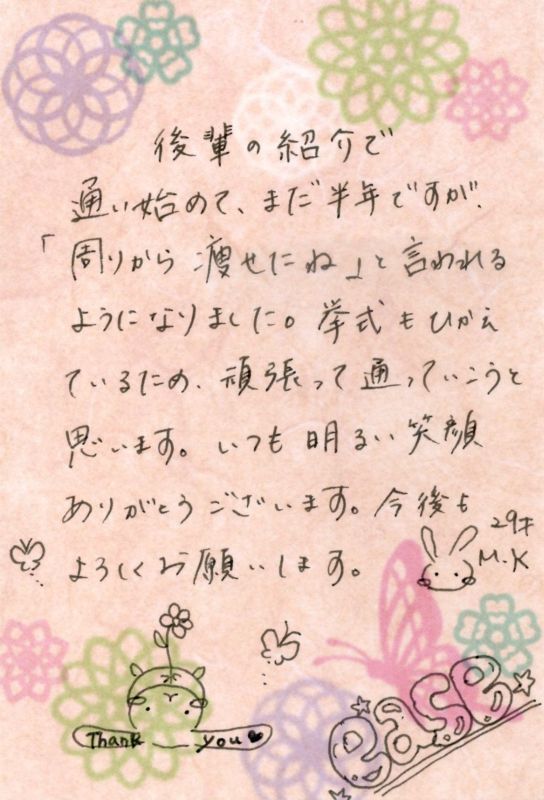 後輩の紹介で
通い始めて、まだ半年ですが、
「周りから痩せたね」と言われる
ようになりました。挙式もひかえ
ているため、頑張って通っていこうと
思います。いつも明るい笑顔
ありがとうございます。今後も
よろしくお願いします。
29才
M.K
Thank you
ease